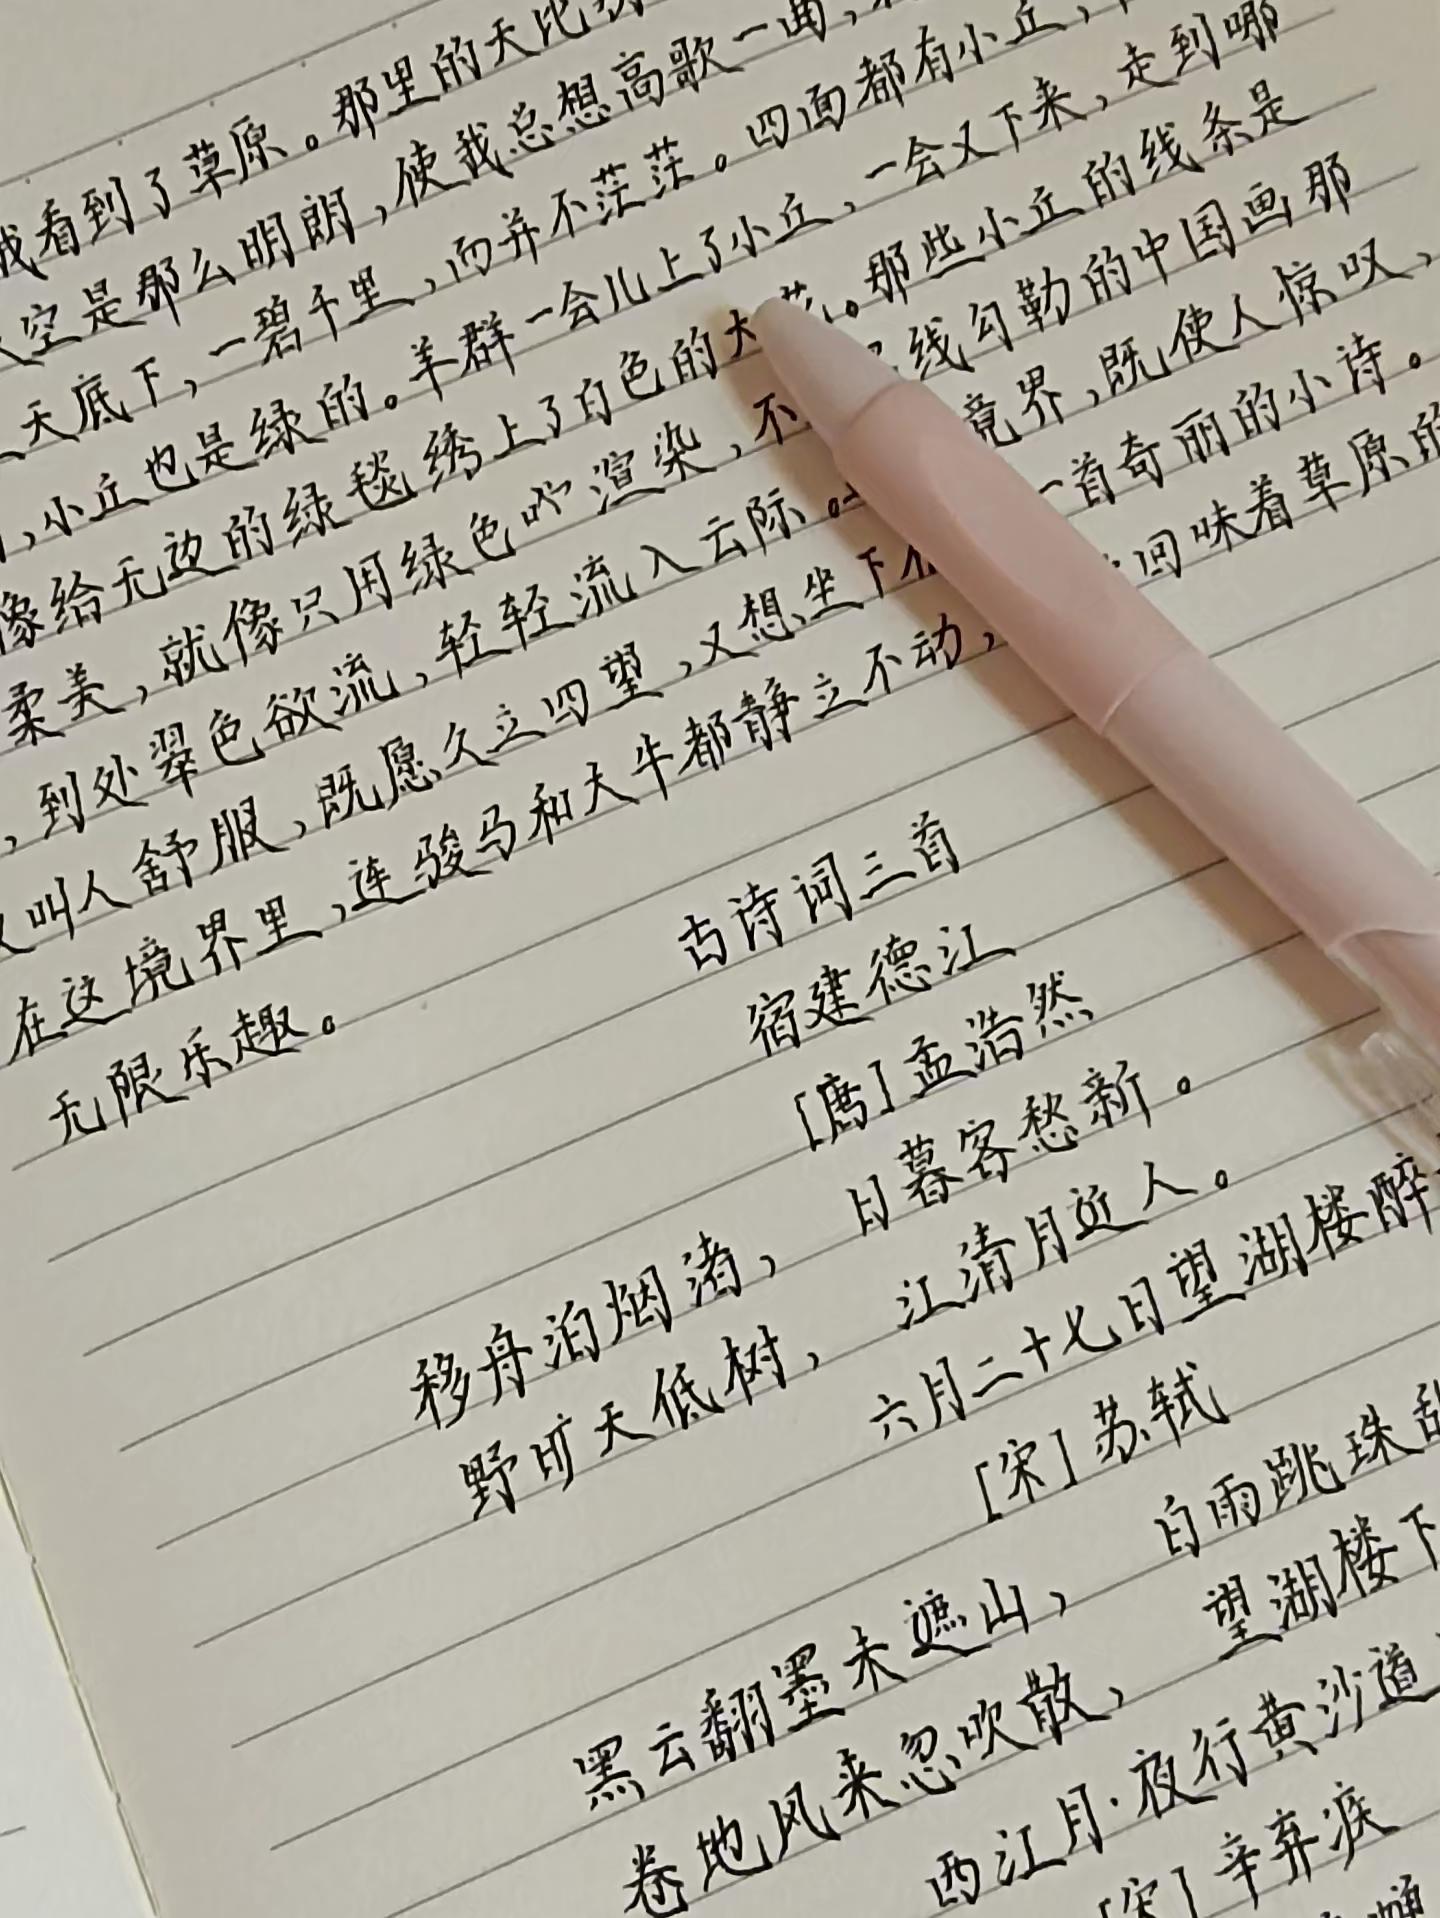 我看到了草原。那里的天比
空是那么明朗，使我总想高歌一曲，
天底下，一碧千里，而并不茫茫。四面都有小丘，
，小丘也是绿的。羊群一会儿上了小丘，一会又下来，走到哪
像给无边的绿毯绣上了白色的大花。那些小丘的线条是
柔美，就像只用绿色渲染，不 线勾勒的中国画那
，到处翠色欲流，轻轻流入云际。 境界，既使人惊叹，
叫人舒服，既愿久立四望，又想坐下 一首奇丽的小诗。
在这境界里，连骏马和大牛都静立不动， 回味着草原的
无限乐趣。
古诗词三首
宿建德江
[唐]孟浩然
移舟泊烟渚， 日暮客愁新。
野旷天低树， 江清月近人。
六月二十七日望湖楼醉
[宋]苏轼
黑云翻墨未遮山， 白雨跳珠乱
卷地风来忽吹散， 望湖楼下
西江月·夜行黄沙道
[宋]辛弃疾